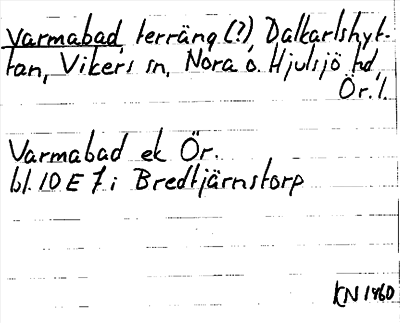 Varmabad, terräng (?), Dalkarlshyt-
tan, Vikers sn, Nora o. Hjulsjö hd,
Ör. l.
Varmabad ek Ör.
bl. 10 E 7 i Bredtjärnstorp
KN 1960